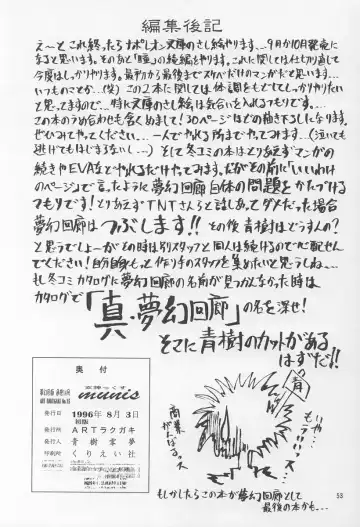 編集後記
え～と これ終ったらナポレオン文庫のさし絵やります…9月か10月発売に
なると思います。そのあと「瞳」の続編をやります。これに関しては仕切り直して
今度はしっかりやります。最初から最後までスケベだけのマンガだと思います…
いつものことか…(笑) この2本に関しては体調をもどしてしっかりやりたい
と思ってますので…特に文庫のさし絵は気合いを入れるつもりです。
この本のうめ合わせも含くめまして! 30ページほどの描き下しになります。
ぜひみてやってください…一人でやれる所までやってみます…(泣いても
逃げてもはじまらないし…) そして冬コミの本はとりあえずマンガの
続きやEVAなどやれるだけやってみます。だがその前に「いいわけ
のページ」で言ったように夢幻回廊自体の問題をかたづける
つもりです! とりあえずTNTさんらと話しあってダメだった場合
夢幻回廊はつぶします!! その後青樹はどうすんの?
と思うでしょーがその時は別スタッフと同人は続けるのでご心配せん
でください! 自分自身もっと作り手のスタッフを集めたいと思うしね…
もし冬コミカタログに夢幻回廊の名前が見つかんなかった時は
カタログで「真・夢幻回廊」の名を探せ!
そこに青樹のカットがある
はずだ!!
奥付
munis
発行日 1996年8月3日
初版
発行所 ARTラクガキ
発行人 青樹零夢
印刷所 くりえい社
青
商業がんばるっス
いや…もーアリーッス…
もしかしたらこの本が夢幻回廊として
最後の本かも…
53